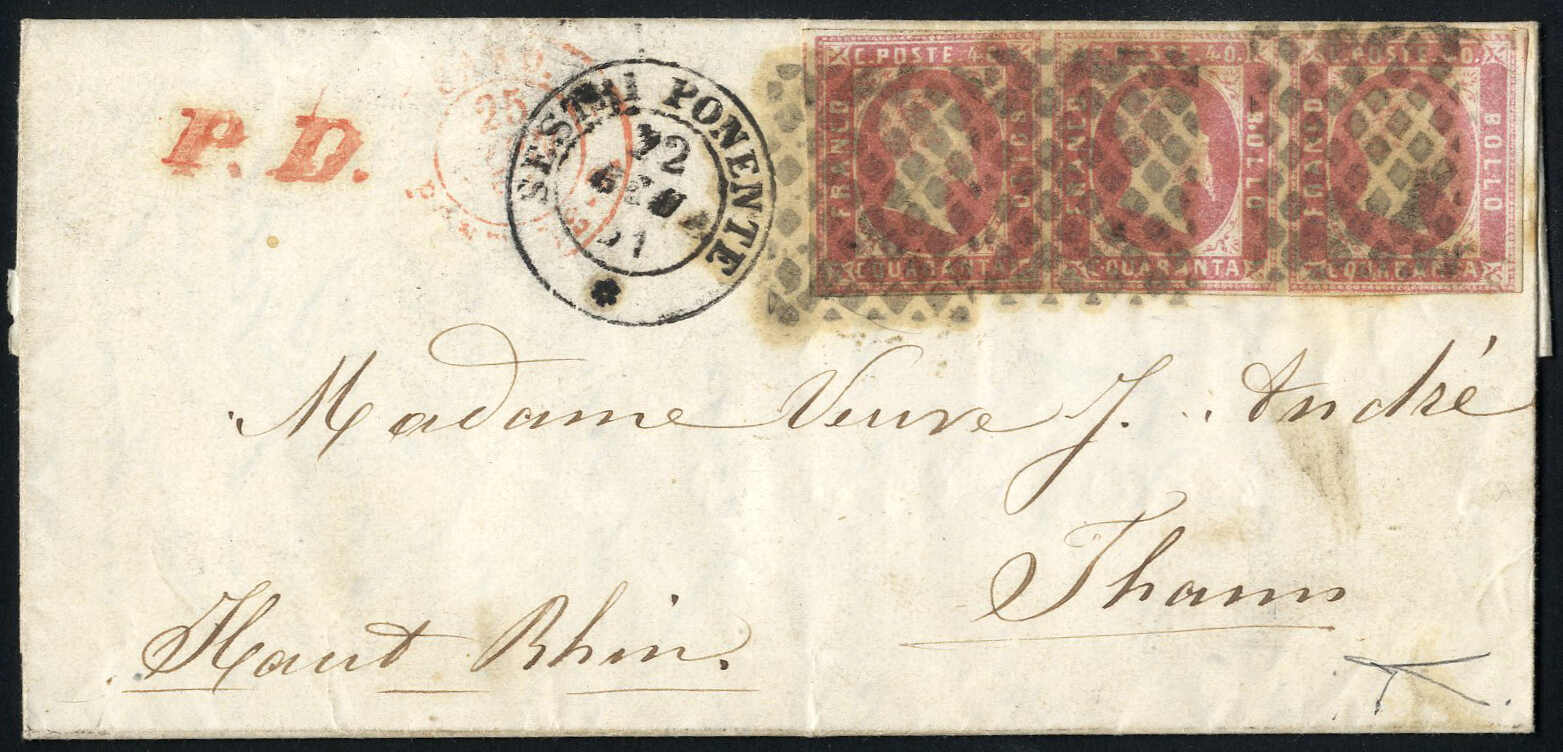 P.D.
25
SESTRI PONENTE
22
51
C. POSTE 40.
FRANCO
BOLLO
C. QUARANTA
C. POSTE 40.
FRANCO
BOLLO
C. QUARANTA
C. POSTE 40.
FRANCO
BOLLO
C. QUARANTA
Madame Veuve J. André
Thann
Haut Rhin.